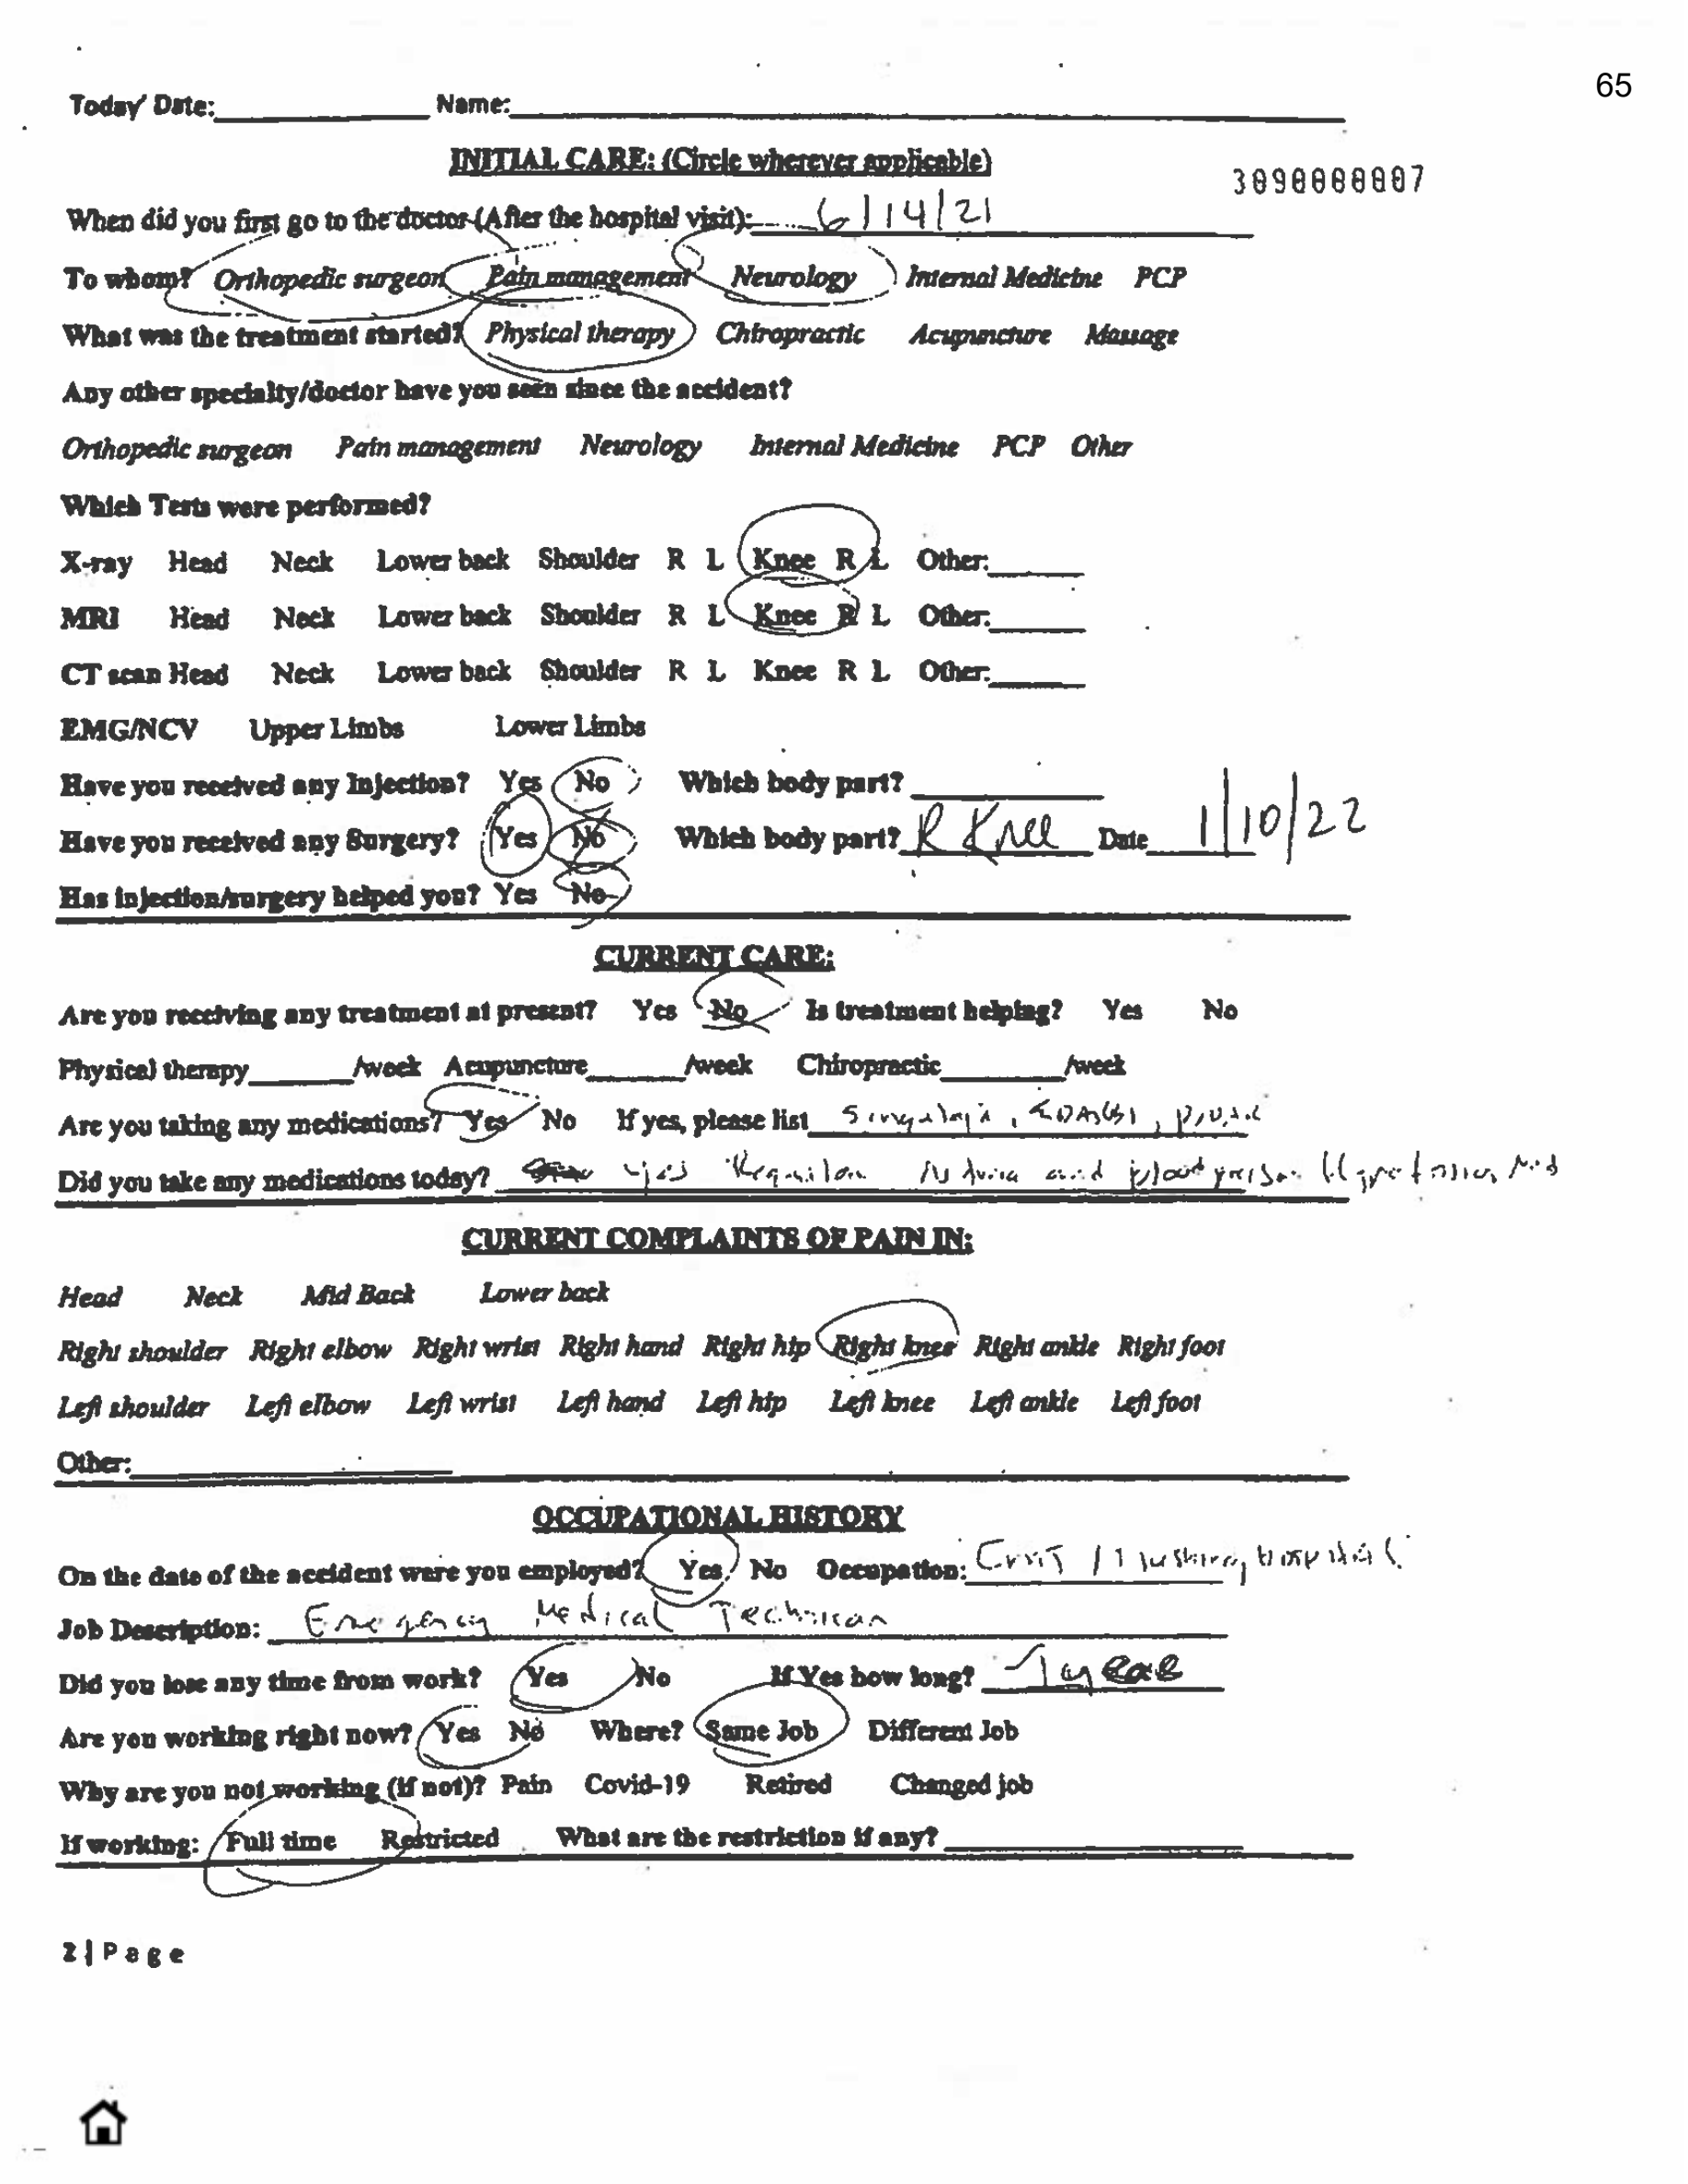 65
Today' Date: Name:
INITIAL CARE: (Circle wherever applicable)
3090000007
When did you first go to the doctor (After the hospital visit): 6/14/21
To whom? Orthopedic surgeon Pain management Neurology Internal Medicine PCP
What was the treatment started? Physical therapy Chiropractic Acupuncture Massage
Any other specialty/doctor have you seen since the accident?
Orthopedic surgeon Pain management Neurology Internal Medicine PCP Other
Which Tests were performed?
X-ray Head Neck Lower back Shoulder R L Knee R L Other:
MRI Head Neck Lower back Shoulder R L Knee R L Other:
CT scan Head Neck Lower back Shoulder R L Knee R L Other:
EMG/NCV Upper Limbs Lower Limbs
Have you received any Injection? Yes No Which body part?
Have you received any Surgery? Yes No Which body part? R Knee Date 1/10/22
Has injection/surgery helped you? Yes No
CURRENT CARE:
Are you receiving any treatment at present? Yes No Is treatment helping? Yes No
Physical therapy /week Acupuncture /week Chiropractic /week
Are you taking any medications? Yes No If yes, please list
Did you take any medications today? yes and blood
CURRENT COMPLAINTS OF PAIN IN:
Head Neck Mid Back Lower back
Right shoulder Right elbow Right wrist Right hand Right hip Right knee Right ankle Right foot
Left shoulder Left elbow Left wrist Left hand Left hip Left knee Left ankle Left foot
Other:
OCCUPATIONAL HISTORY
On the date of the accident were you employed? Yes No Occupation: Hospital
Job Description: Emergency Medical Technican
Did you lose any time from work? Yes No If Yes how long? 1 year
Are you working right now? Yes No Where? Same Job Different Job
Why are you not working (if not)? Pain Covid-19 Retired Changed job
If working: Full time Restricted What are the restriction if any?
2 | Page